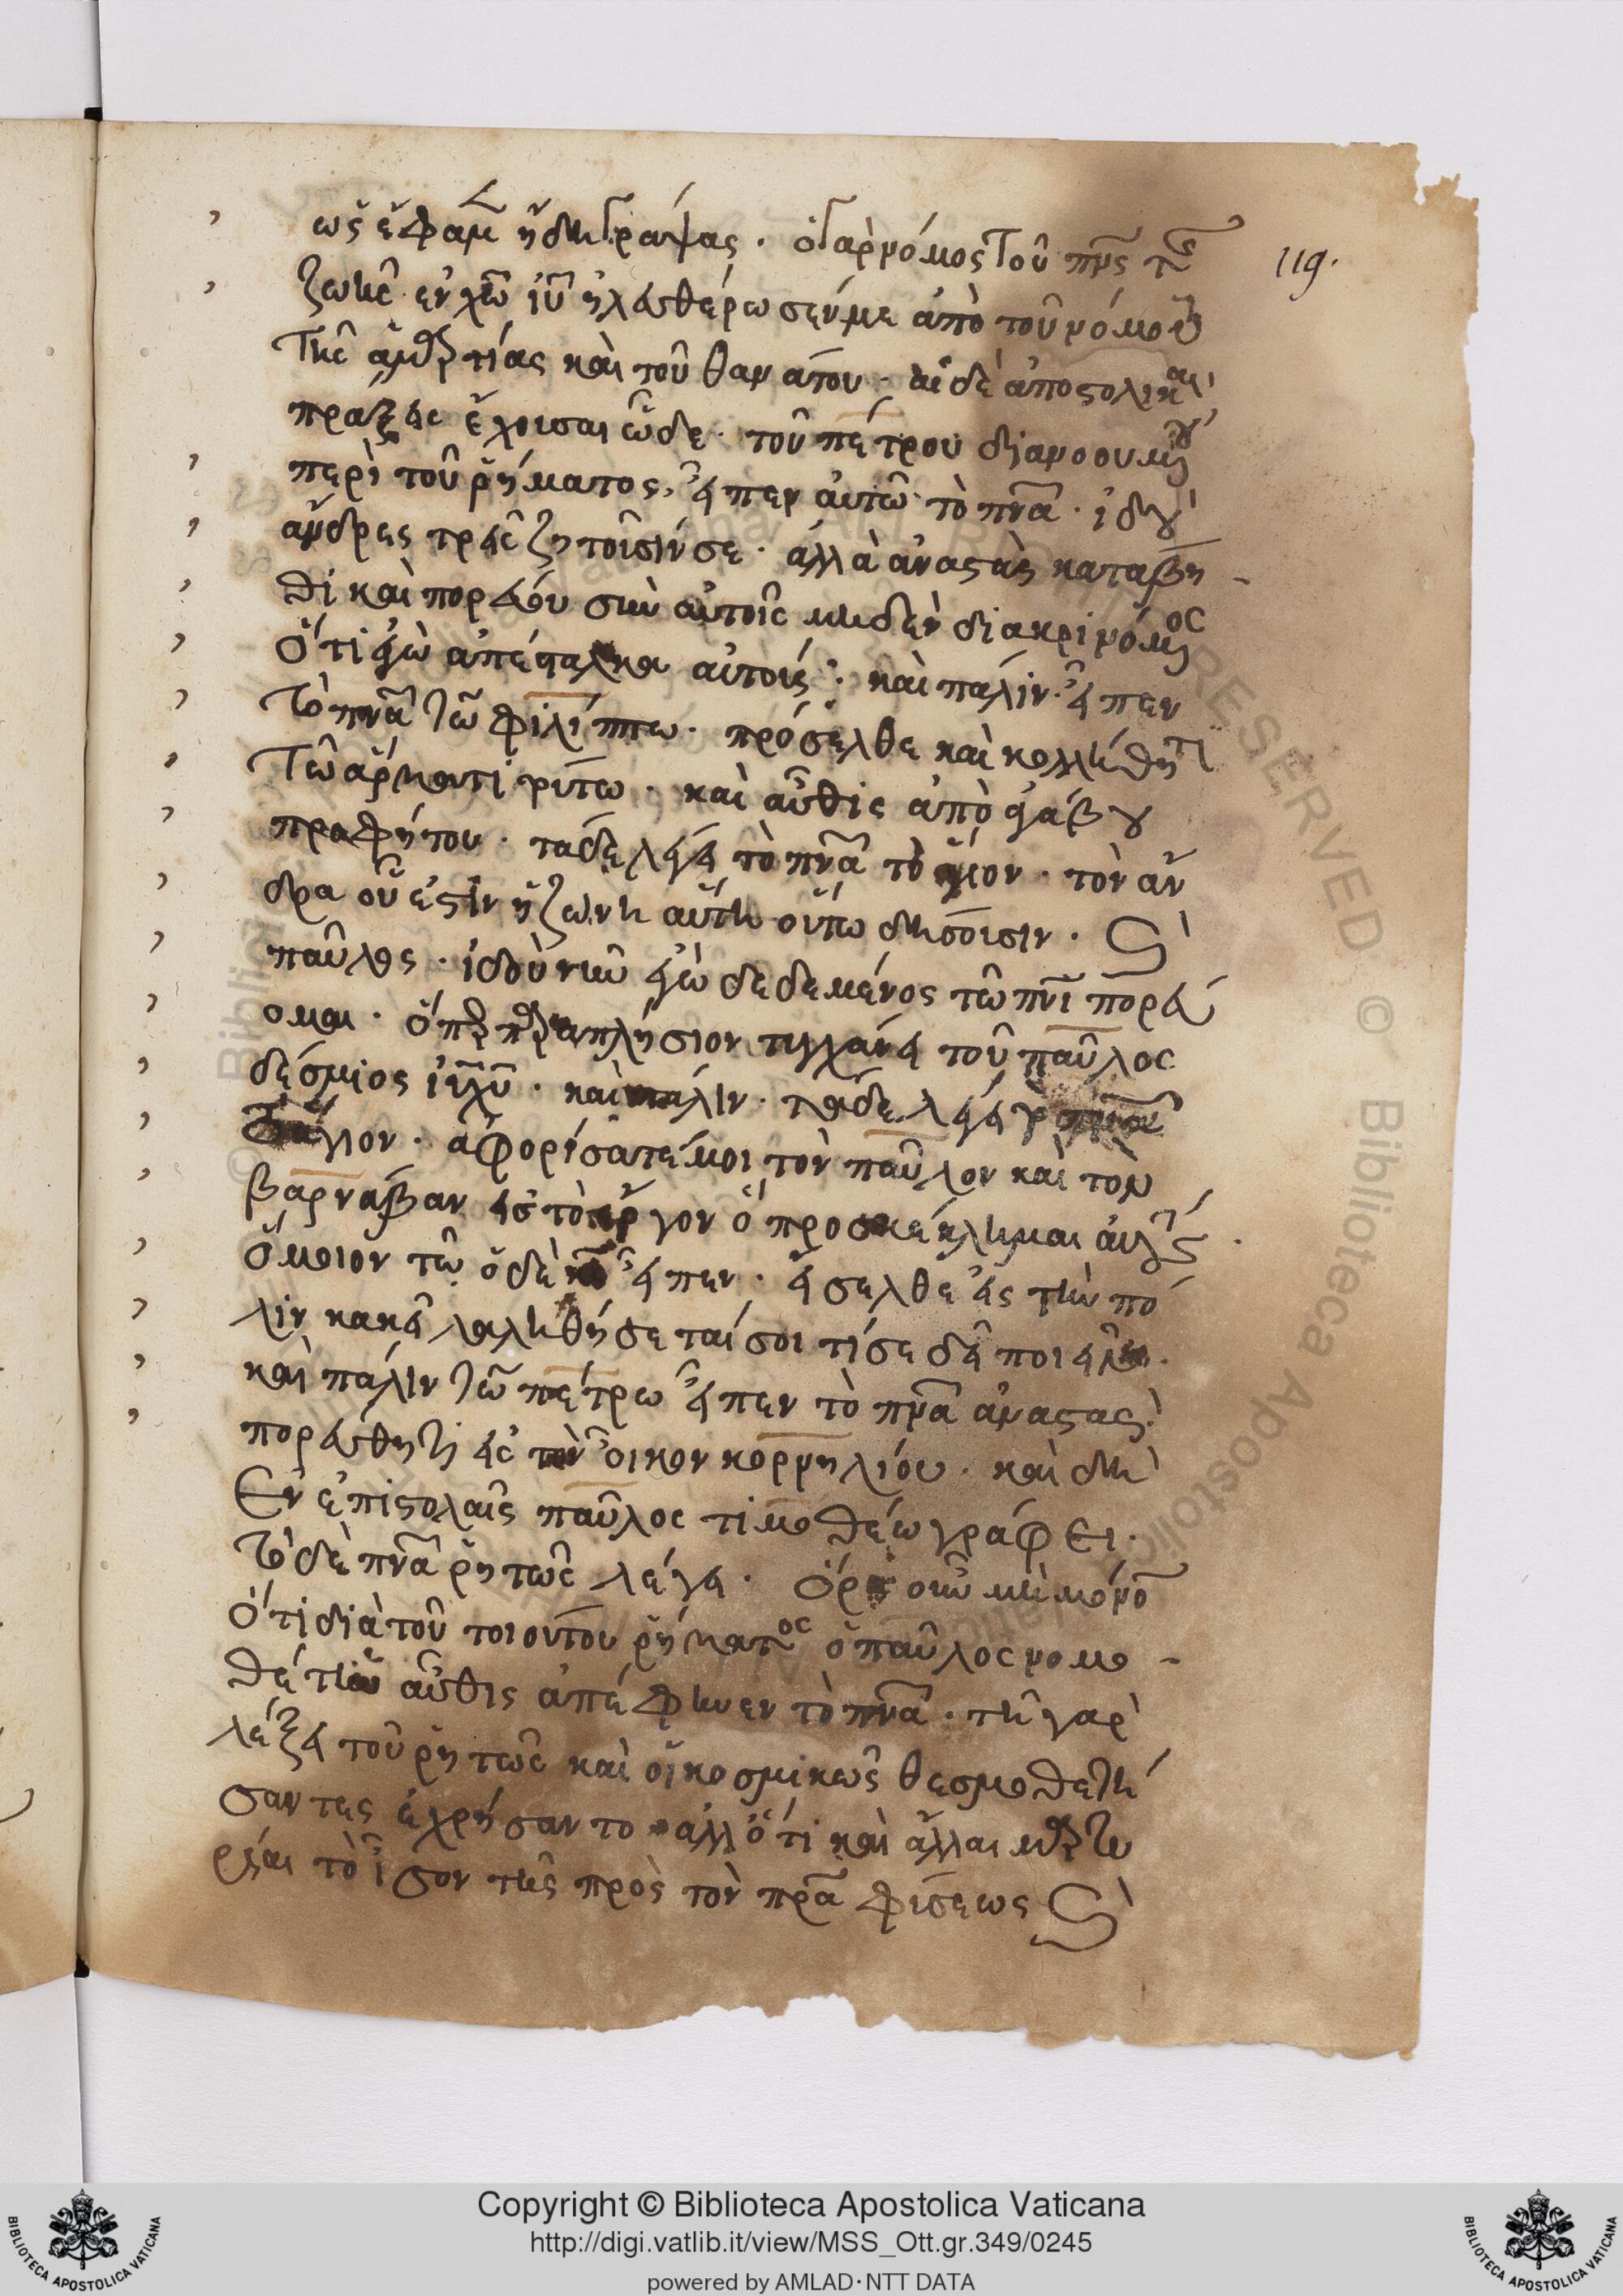 ὡς ἔφαμεν ἤδη γράψας · ὁ γὰρ νόμος τοῦ πνς τῆς
ζωῆς ἐν χῶ ἰῦ ἠλευθέρωσέν με ἀπὸ τοῦ νόμου
119.
τῆς ἁμαρτίας καὶ τοῦ θανάτου · αἱ δὲ ἀποστολικαὶ
πράξεις ἔχουσαι ὧδε · τοῦ πέτρου διανοουμένου
περὶ τοῦ ῥήματος, εἶπεν αὐτῶ τὸ πνᾶ · ἰδοὺ
ἄνδρες τρεῖς ζητοῦσίν σε · ἀλλὰ ἀναστὰς κατάβη-
θι καὶ πορεύου σὺν αὐτοῖς μηδὲν διακρινόμενος
ὅτι ἐγὼ ἀπέσταλκα αὐτούς · καὶ πάλιν · εἶπεν
τὸ πνᾶ τῶ φιλίππω · πρόσελθε καὶ κολλήθητι
τῶ ἅρματι τούτω · καὶ αὖθις ἀπὸ ἀγάβου
προφήτου · τάδε λέγει τὸ πνᾶ τὸ ἅγιον · τὸν ἄν
δρα οὗ ἐστιν ἡ ζώνη αὕτη οὕτω δήσουσιν · Καὶ
παῦλος · ἰδοὺ νῦν ἐγὼ δεδεμένος τῶ πνι πορεύ
ομαι · ὅπερ παραπλήσιον τυγχάνει τοῦ παῦλος
δέσμιος ἰῦ χῦ · καὶ πάλιν · τάδε λέγει τὸ πνᾶ
τὸ ἅγιον · ἀφορίσατέ μοι τὸν παῦλον καὶ τὸν
βαρνάβαν εἰς τὸ ἔργον ὃ προσκέκλημαι αὐτούς ·
ὅμοιον τῶ ὁ δὲ κς εἶπεν · εἴσελθε εἰς τὴν πό
λιν κακεῖ λαληθήσεταί σοι τί σε δεῖ ποιεῖν ·
καὶ πάλιν τῶ πέτρω εἶπεν τὸ πνᾶ ἀναστὰς
πορεύθητι εἰς τὸν οἶκον κορνηλίου · καὶ δὴ
ἐν ἐπιστολαῖς παῦλος τιμοθέω γράφει ·
τὸ δὲ πνᾶ ῥητῶς λέγει · ὅρα οὖν μὴ μόνον
ὅτι διὰ τοῦ τοιούτου ῥήματος ὁ παῦλος νομο-
θέτην αὖθις ἀπέφηνεν τὸ πνᾶ · τῆ γὰρ
λέξει τοῦ ῥητῶς καὶ οἱ κοσμικῶς θεσμοθετή
σαντες ἐχρήσαντο · ἀλλ' ὅτι καὶ ἄλλαι μαρτυ
ρίαι τὸ ἴσον τῆς πρὸς τὸν πρα φύσεως Καὶ
Copyright © Biblioteca Apostolica Vaticana
http://digi.vatlib.it/view/MSS_Ott.gr.349/0245
powered by AMLAD·NTT DATA
BIBLIOTECA APOSTOLICA VATICANA
BIBLIOTECA APOSTOLICA VATICANA